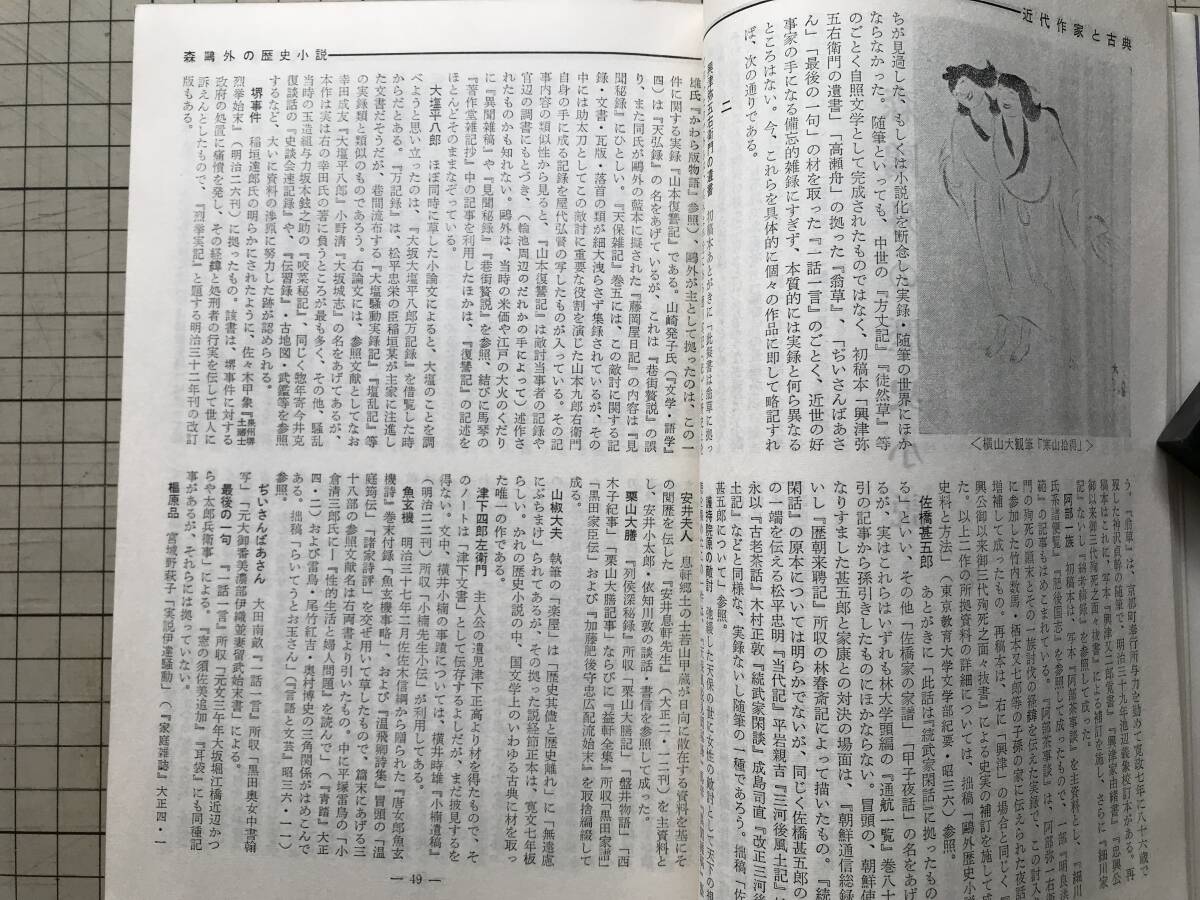 近代作家と古典
＜横山大観筆「寒山拾得」＞
ちが見過した、もしくは小説化を断念した実録・随筆の世界にほか
ならなかった。随筆といっても、中世の『方丈記』『徒然草』等
のごとく自照文学として完成されたものではなく、初稿本「興津弥
五右衛門の遺書」「高瀬舟」の拠った『翁草』、「ぢいさんばあさ
ん」「最後の一句」の材を取った『一話一言』のごとく、近世の好
事家の手になる備忘的雑録にすぎず、本質的には実録と何ら異なる
ところはない。今、これらを具体的に個々の作品に即して略記すれ
ば、次の通りである。
二
興津弥五右衛門の遺書　初稿本あとがきに「此擬書は翁草に拠っ
う。『翁草』は、京都町奉行所与力を勤めて寛政七年に八十六歳で
佐橋甚五郎　あとがきに「此話は『続武家閑話』に拠ったもの
る」といい、その他「佐橋家の家譜」「甲子夜話」の名をあげ
るが、実はこれらはいずれも林大学頭編の『通航一覧』巻八十
引の記事から孫引きしたものにほかならない。冒頭の、朝鮮使
なりすました甚五郎と家康との対決の場面は、『朝鮮通信総録
いし『歴朝来聘記』所収の林春斎記によって描いたもの。『続
閑話』の原本については明らかでないが、同じく佐橋甚五郎の
の一端を伝える松平忠明『当代記』平岩親吉『三河後風土記』
永以『古老茶話』木村正敦『続武家閑談』成島司直『改正三河後
土記』などと同様な、実録ないし随筆の一種であろう。拙稿「佐
甚五郎について」参照。
森鷗外の歴史小説
雄氏『かわら版物語』参照）、鷗外が主として拠ったのは、この一
件に関する実録『山本復讐記』である。山崎発子氏（『文学・語学』
四）は『天弘録』の名をあげているが、これは『巷街贅説』の誤
り、また同氏が鷗外の藍本に擬された『藤岡屋日記』の内容は『見
聞秘録』にひとしい。『天保雑記』巻五には、この敵討に関する記
録・文書・瓦版・落首の類が細大洩らさず集録されているが、その
中には助太刀としてこの敵討に重要な役割を演じた山本九郎右衛門
自身の手に成る記録を屋代弘賢の写したものが入っている。その記
事内容の類似性から見ると、『山本復讐記』は敵討当事者の記録や
官辺の調書にもとづき、（輪池周辺のだれかの手によって）述作さ
れたものかも知れない。鷗外は、当時の米価や江戸の大火のくだり
に『異聞雑稿』や『見聞秘録』『巷街贅説』を参照、結びに馬琴の
『著作堂雑記抄』中の記事を利用したほかは、『復讐記』の記述を
ほとんどそのままなぞっている。
大塩平八郎　ほぼ同時に草した小論文によると、大塩のことを調
べようと思い立ったのは、『大坂大塩平八郎万記録』を借覧した時
からだとある。『万記録』は、松平忠栄の臣稲垣某が主家に注進し
た文書だそうだが、巷間流布する『大塩騒動実録記』『塩乱記』等
の実録類と類似のものであろう。右論文には、参照文献としてなお
幸田成友『大塩平八郎』小野清『大坂城志』の名をあげてあるが、
本作は実は右の幸田氏の著に負うところが最も多く、その他、騒乱
当時の玉造組与力坂本鉉之助の『咬菜秘記』、同じく惣年寄今井克
復談話の『史談会速記録』や、『伝習録』・古地図・武鑑等を参照
するなど、大いに資料の渉原に努力した跡が認められる。
堺事件　稲垣達郎氏の明らかにされたように、佐々木甲象『泉州堺土藩士
烈挙始末』（明治二六刊）に拠ったもの。該書は、堺事件に対する
政府の処置に痛憤を発し、その経緯と処刑者の行実を伝して世人に
訴えんとしたもので、『烈挙実記』と題する明治三十二年刊の改訂
版もある。
安井夫人　息軒郷土の士若山甲蔵が日向に散在する資料を基にそ
の閲歴を伝した『安井息軒先生』（大二・一二刊）を主資料と
し、安井小太郎・依知川敦の談話・書信を参照して成った。
栗山大膳　『列侯深秘録』所収「栗山大膳記」「盤井物語」「西
木子紀事」「栗山大膳記事」ならびに『益軒全集』所収「黒田家譜」
「黒田家臣伝」および『加藤肥後守忠広配流始末』を取捨編綴して
成る。
山椒大夫　執筆の「楽屋」は「歴史其儘と歴史離れ」に「無遣慮
にぶちまけ」られてあるが、その拠った説経節正本は、寛文七年板
らしい。かれの歴史小説の中、国文学上のいわゆる古典に材を取っ
た唯一の作である。
津下四郎左衛門　主人公の遺児津下正高より材を得たもので、そ
のノートは「津下文書」として伝存するよしだが、まだ披見するを
得ない。文中、横井小楠の事蹟については、横井時雄『小楠遺稿』
（明治二二刊）所収「小楠先生小伝」が利用してある。
魚玄機　明治三十七年二月佐佐木信綱から贈られた『唐女郎魚玄
機詩』巻末付録「魚玄機事略」、および『温飛卿詩集』冒頭の「温
庭筠伝」「諸家詩評」を交ぜ用いて草したもので、篇末にあげる三
十八部の参照文献名は右両書より引いたもの。中に平塚雷鳥の「小
倉清三郎氏に―『性的生活と婦人問題』を読んで」（『青鞜』大正
四・二）および雷鳥・尾竹紅吉・奥村博史の三角関係がはめこんで
ある。拙稿「らいてうとお玉さん」（『言語と文芸』昭三六・一）
参照。
ぢいさんばあさん　大田南畝『一話一言』所収「黒田奥女中書翰
写」「元大御番美濃部伊織並妻留武始末書」による。
最後の一句　『一話一言』所収「元文三年大坂堀江橋近辺かつ
らや太郎兵衛事」による。『窓の須佐美追加』『耳袋』にも同種記
事があるが、それらには拠っていない。
椙原品　宮城野萩子「実説伊達騒動」（『家庭雑誌』大正四・一
― 49 ―